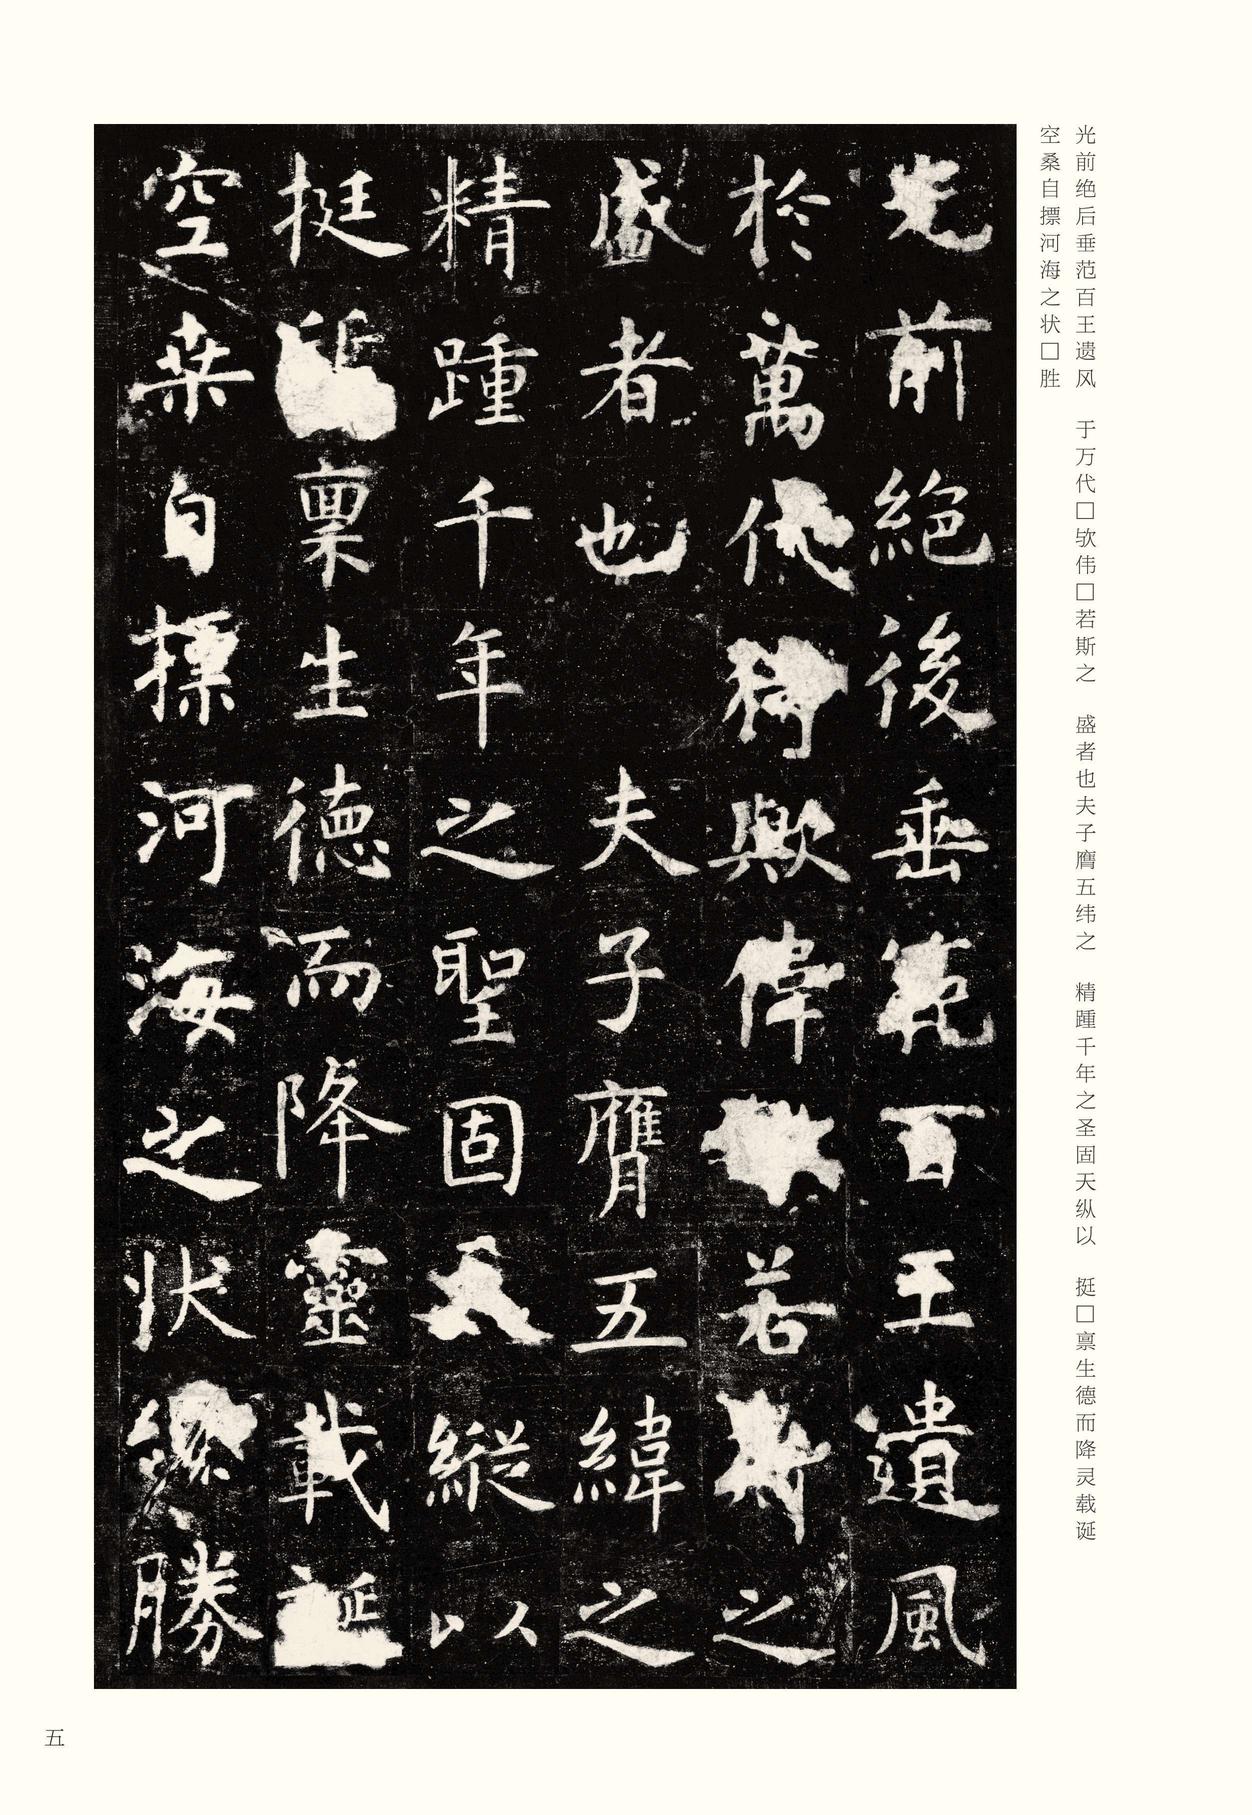 光前绝后垂范百王遗风　于万代□欤伟□若斯之　盛者也夫子膺五纬之　精踵千年之圣固天纵以　挺□禀生德而降灵载诞
空桑自摽河海之状□胜
光前絕後垂範百王遺風
於萬代猗歟偉若斯之
盛者也夫子膺五緯之
精踵千年之聖固天縱以
挺禀生德而降靈載誕
空桒自摽河海之状勝
五